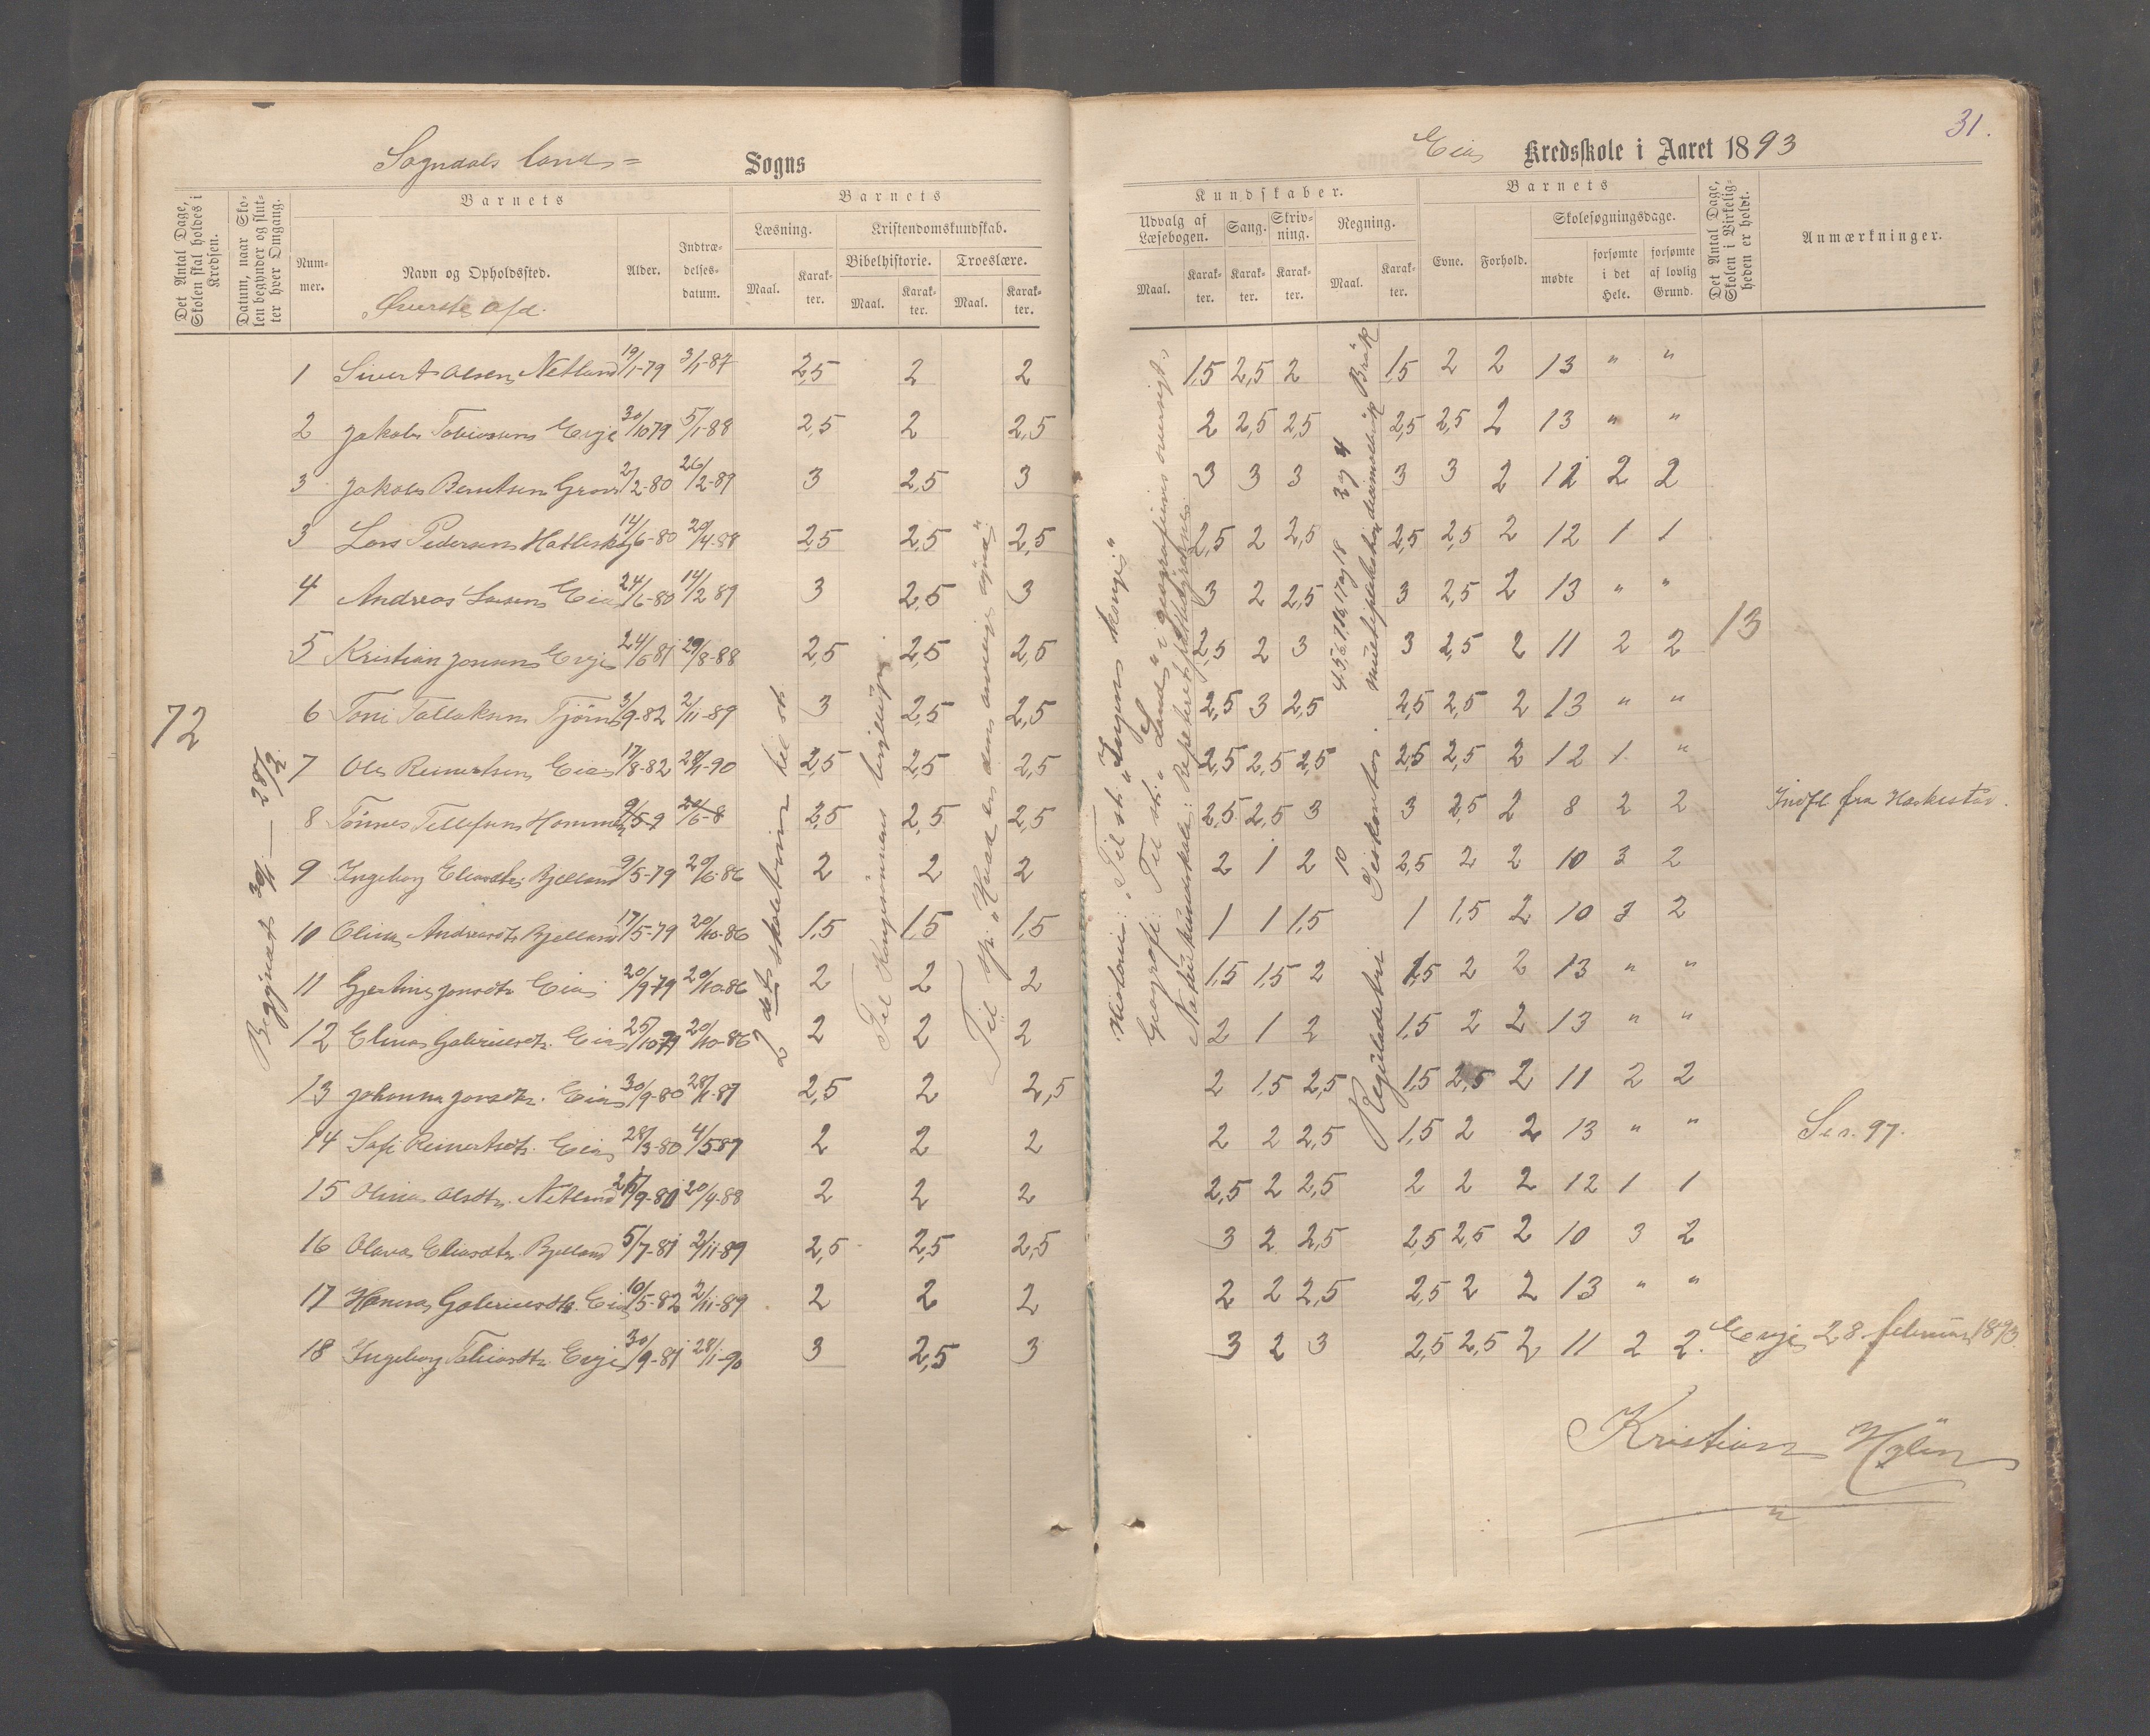 31.
Sogndals land= Sogns
Eia Kredsskole i Aaret 1893
Det Antal Dage, Skolen skal holdes i Kredsen.
Datum, naar Skolen begynder og slutter hver Omgang.
Barnets
Nummer.
Navn og Opholdssted.
Øverste afd.
Alder.
Indtrædelsesdatum.
Barnets
Læsning.
Maal.
Karakter.
Kristendomskundskab.
Bibelhistorie.
Maal.
Karakter.
Troeslære.
Maal.
Karakter.
Kundskaber.
Udvalg af Læsebogen.
Maal.
Karakter.
Sang.
Karakter.
Skrivning.
Karakter.
Regning.
Maal.
Karakter.
Barnets
Evne.
Forhold.
Skolesøgningsdage.
mødte
forsømte i det Hele.
forsømte af lovlig Grund.
Det Antal Dage, Skolen i Virkeligheden er holdt.
Anmærkninger.
72
13
1 Sivert Olsen Netland 19/1-79 3/1-87 2,5 2 2 1,5 2,5 2 1,5 2 2 13 " "
2 Jakob Tobiassen Evje 30/10 79 5/1-88 2,5 2 2,5 2 2,5 2,5 2,5 2,5 2 13 " "
3 Jakob Berntsen 2/2-80 26/2-89 3 2,5 3 3 3 3 3 3 2 12 2 2
3 Lars Pedersen 14/6-80 20/4-88 2,5 2,5 2,5 2,5 2 2,5 2,5 2,5 2 12 1 1
4 Andreas Larsen Eia 24/6-80 14/2 89 3 2,5 3 3 2 2,5 3 2,5 2 13 " "
5 Kristian Evje 24/6 81 29/8-88 2,5 2,5 2,5 2,5 2 3 3 2,5 2 11 2 2
6 Toni Tollaksen 3/9-82 2/11-89 3 2,5 2,5 2,5 3 2,5 2,5 2,5 2 13 " "
7 Ole Reinertsen Eia 17/8-82 28/1-90 2,5 2,5 2,5 2,5 2,5 2,5 2,5 2,5 2 12 1 "
8 Tønnes Tellefsen 2,5 2,5 2,5 2,5 2,5 3 3 2,5 2 8 2 2 Indfl. fra Heskestad.
9 Ingeborg Eliasdtr. Bjelland 9/5-79 20/6-86 2 2 2 2 1 2 2,5 2 2 10 3 2
10 Olina Andreasdtr. Bjelland 17/5-79 20/10-86 1,5 1,5 1,5 1 1 1,5 1 1,5 2 10 3 2
11 Jonsdtr. Eia 20/9-79 20/10-86 2 2 2 1,5 1,5 2 1,5 2 2 13 " "
12 Elina Gabrielsdtr. Eia 25/10-79 20/10-86 2 2 2 2 1 2 1,5 2 2 13 " "
13 Johanna Jonsdtr. Eia 30/9-80 28/1-87 2,5 2 2,5 2 1,5 2,5 1,5 2,5 2 11 2 2
14 Sofi Reinertsdtr. Eia 28/3-80 4/5 87 2 2 2 2 2 2,5 1,5 2 2 13 " " Se s. 97.
15 Olina Olsdtr. Netland 20/4-88 2 2 2 2,5 2 2,5 2 2 2 12 1 1
16 Olava Eliasdtr. Bjelland 5/7-81 2/11-89 2,5 2,5 2,5 3 2 2,5 2,5 2,5 2 10 3 2
17 Gabrielsdtr. Eia 10/5-82 2/11-89 2 2 2 2 2 2,5 2,5 2 2 13 " "
18 Ingeborg Tobiasdtr. Evje 30/9-81 28/1-90 3 2,5 3 3 2 3 2,5 2,5 2 11 2 2.
Begyndt 30/1 — 28/2
2det skoletrin til st.
Til Kongesønnens bryllup.
Historie: Til st. "Ingens konge"
Geografi: Til st.
Naturkundskab:
Reguladetri
Diskonto.
10
4,5,6,7,16,17 og 18
3 og 4
Brøk
Evje 28 februar 1893.
Kristian